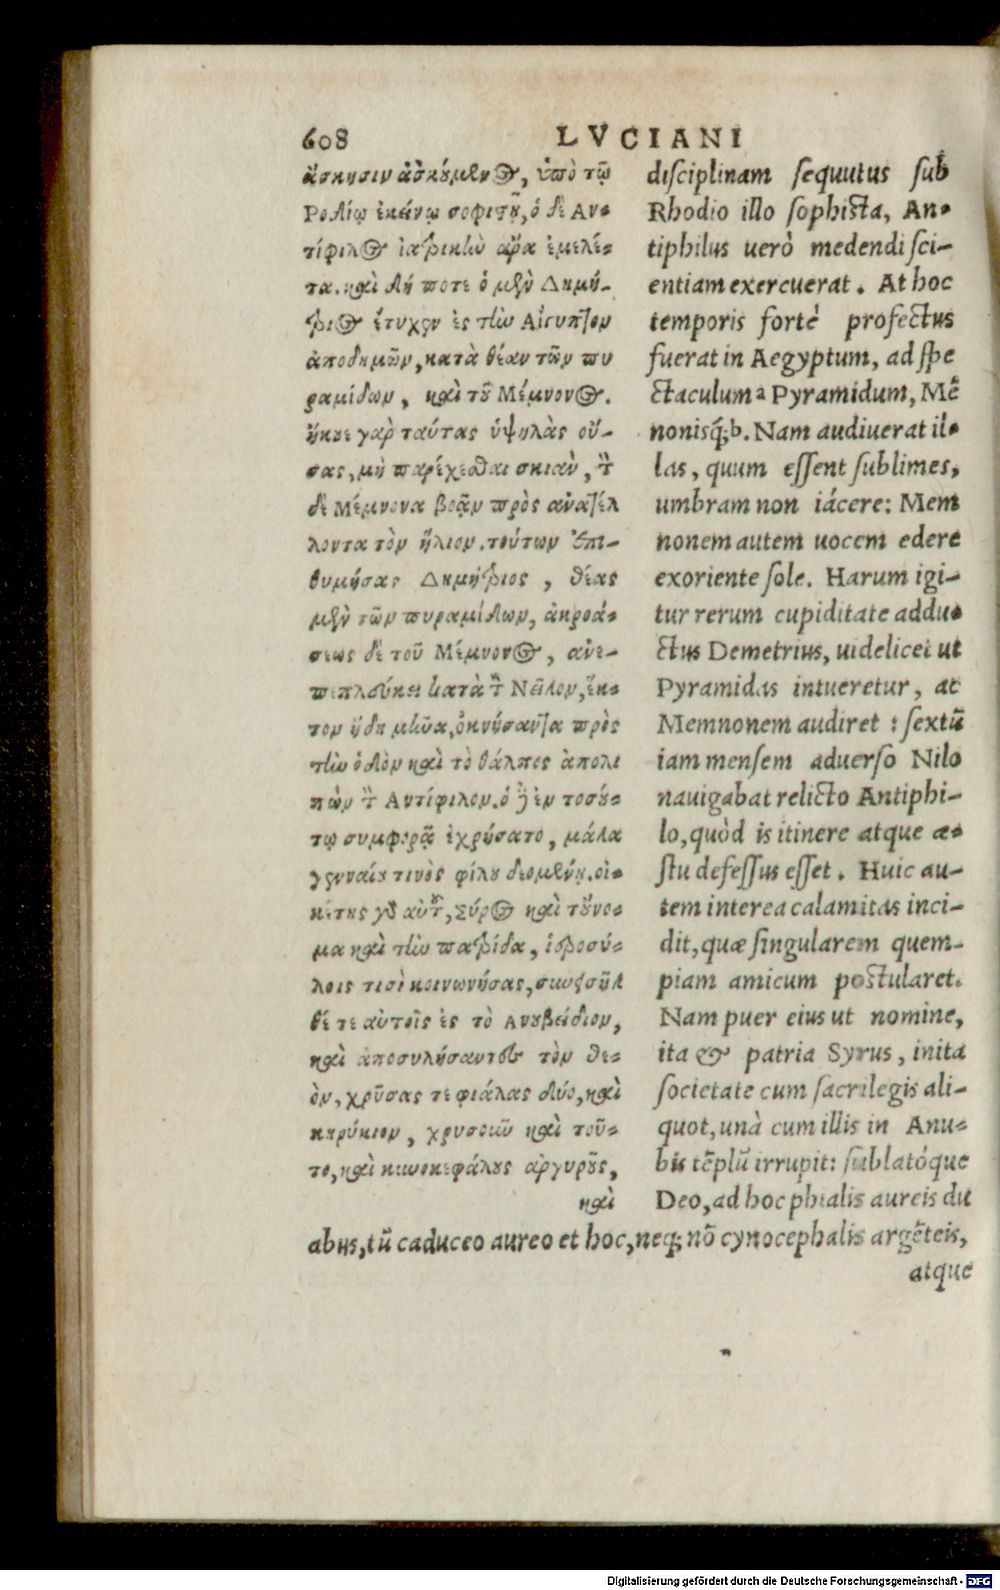 608 LVCIANI
ἄσκησιν ἀσκούμενος, ὑπὸ τῷ
Ροδίῳ ἐκείνῳ σοφιστῇ, ὁ δὲ Αν-
τίφιλος ἰατρικὴν ἄρα ἐμελέ-
τα. καὶ δή ποτε ὁ μὲν Δημή-
τριος ἔτυχεν ἐς τὴν Αἴγυπτον
ἀποδημῶν, κατὰ θέαν τῶν πυ
ραμίδων, καὶ τοῦ Μέμνονος.
ἤκουε γὰρ ταύτας ὑψηλὰς οὔ-
σας, μὴ παρέχεσθαι σκιὰν, τὸν
δὲ Μέμνονα βοᾷν πρὸς ἀνατέλ
λοντα τὸν ἥλιον. τούτων ἐπι-
θυμήσας Δημήτριος, θέας
μὲν τῶν πυραμίδων, ἀκροά-
σεως δὲ τοῦ Μέμνονος, ἀνε-
πεπλεύκει κατὰ τὸν Νεῖλον, ἕκ-
τον ἤδη μῆνα, ὀκνήσαντα πρὸς
τὴν ὁδὸν καὶ τὸ θάλπος ἀπολι
πὼν τὸν Αντίφιλον. ὁ δὲ ἐν τοσού-
τῳ συμφορᾷ ἐχρήσατο, μάλα
γενναίου τινὸς φίλου δεομένῃ. οἰ-
κέτης γὰρ αὐτοῦ, Σύρος καὶ τοὔνο-
μα καὶ τὴν πατρίδα, ἱεροσύ-
λοις τισὶ κοινωνήσας, συνεισῆλ
θέ τε αὐτοῖς ἐς τὸ Ανουβείδιον,
καὶ ἀποσυλήσαντες τὸν θε-
ὸν, χρυσᾶς τε φιάλας δύο, καὶ
κηρύκιον, χρυσοῦν καὶ τοῦ-
το, καὶ κυνοκεφάλους ἀργυροῦς,
καὶ
disciplinam sequutus sub
Rhodio illo sophista, An-
tiphilus uerò medendi sci-
entiam exercuerat. At hoc
temporis fortè profectus
fuerat in Aegyptum, ad spe
ctaculum a Pyramidum, Mē
nonisq; b. Nam audiuerat il-
las, quum essent sublimes,
umbram non iácere: Mem
nonem autem uocem edere
exoriente sole. Harum igi-
tur rerum cupiditate addu-
ctus Demetrius, uidelicet ut
Pyramidas intueretur, ac
Memnonem audiret: sextū
iam mensem aduerso Nilo
nauigabat relicto Antiphi-
lo, quòd is itinere atque æ-
stu defessus esset. Huic au-
tem interea calamitas inci-
dit, quæ singularem quem-
piam amicum postularet.
Nam puer eius ut nomine,
ita & patria Syrus, inita
societate cum sacrilegis ali-
quot, unà cum illis in Anu-
bis tēplū irrupit: sublatóque
Deo, ad hoc phialis aureis du
abus, tū caduceo aureo et hoc, neq; nō cynocephalis argēteis,
atque
Digitalisierung gefördert durch die Deutsche Forschungsgemeinschaft - DFG